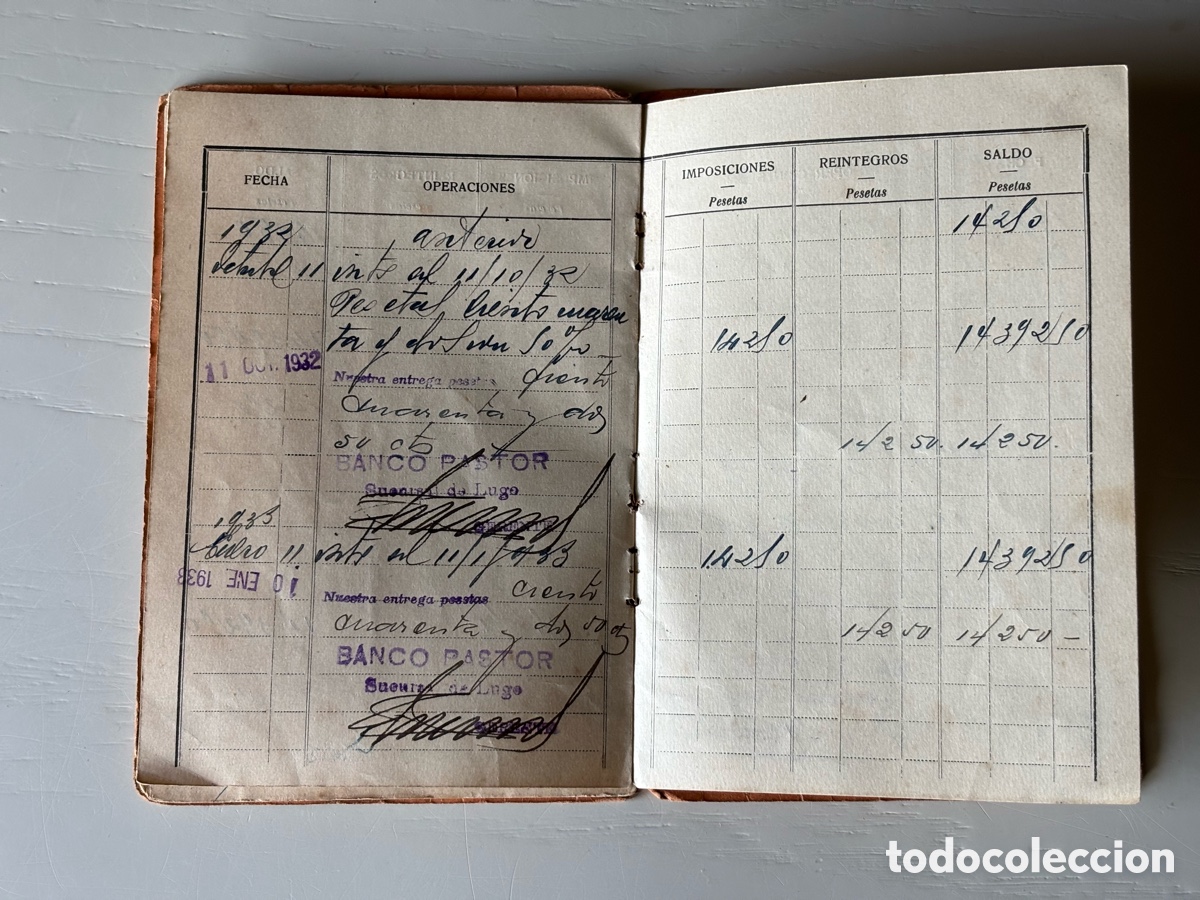 FECHA OPERACIONES IMPOSICIONES REINTEGROS SALDO
Pesetas Pesetas Pesetas
1932 anterior 14250
11 ints al 11/10/32
Pesetas Ciento cuaren
ta y dos con 50% 14250 1439250
11 OCT. 1932 Nuestra entrega pesetas Ciento
cuarenta y dos
50 cts 142 50. 14250.
BANCO PASTOR
Sucursal de Lugo
GERENTE
1933
Enero 11 ints al 11/1/933 14250 1439250
10 ENE 1933 Nuestra entrega pesetas Ciento
cuarenta y dos 50 cts 14250 14250 —
BANCO PASTOR
Sucursal de Lugo
GERENTE
todocoleccion